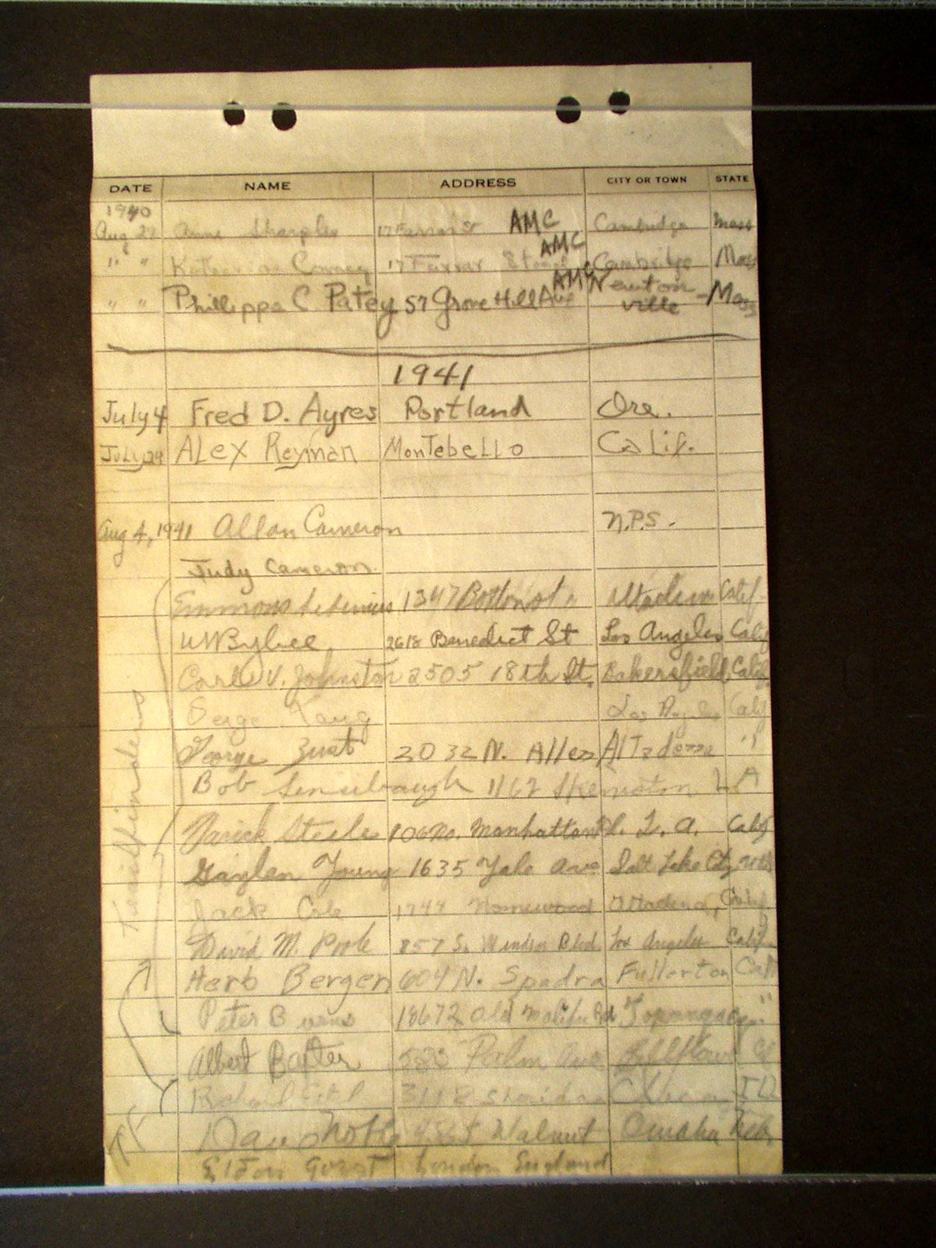 DATE NAME ADDRESS CITY OR TOWN STATE
1940
Aug 27 Anne Sharples 17 Farrar St AMC Cambridge Mass
" " 17 Farrar Street AMC Cambridge Mass
" " Philippa C Patey 57 Grove Hill Ave AMC Newton-
ville Mass
1941
July 4 Fred D. Ayres Portland Ore.
July 29 Alex Reyman Montebello Calif.
Aug 4, 1941 Allan Cameron N.P.S.
Judy Cameron
Emmons 1347 Calif.
2618 Benedict St Los Angeles Calif
Carl V. Johnston 2505 18th St. Bakersfield, Calif
Los Angeles Calif
George Zust 2032 N. Allen Altadena "
Bob 1162 L A
Steele 106 No. Manhattan Pl. L. A. Calif
Gaylen Young 1635 Yale Ave Salt Lake City Utah
Jack Cole 1744 Homewood Altadena, Calif
David M. Poole 857 So. Windsor Blvd Los Angeles Calif.
Herb Bergen 604 N. Spadra Fullerton Cal
Peter 18672 Old Malibu Rd Topanga "
Albert Baxter Palm Ave
Richard 3118 Sheridan Ill
Dave Walnut Omaha Neb.
Elton London England
Trailfinders